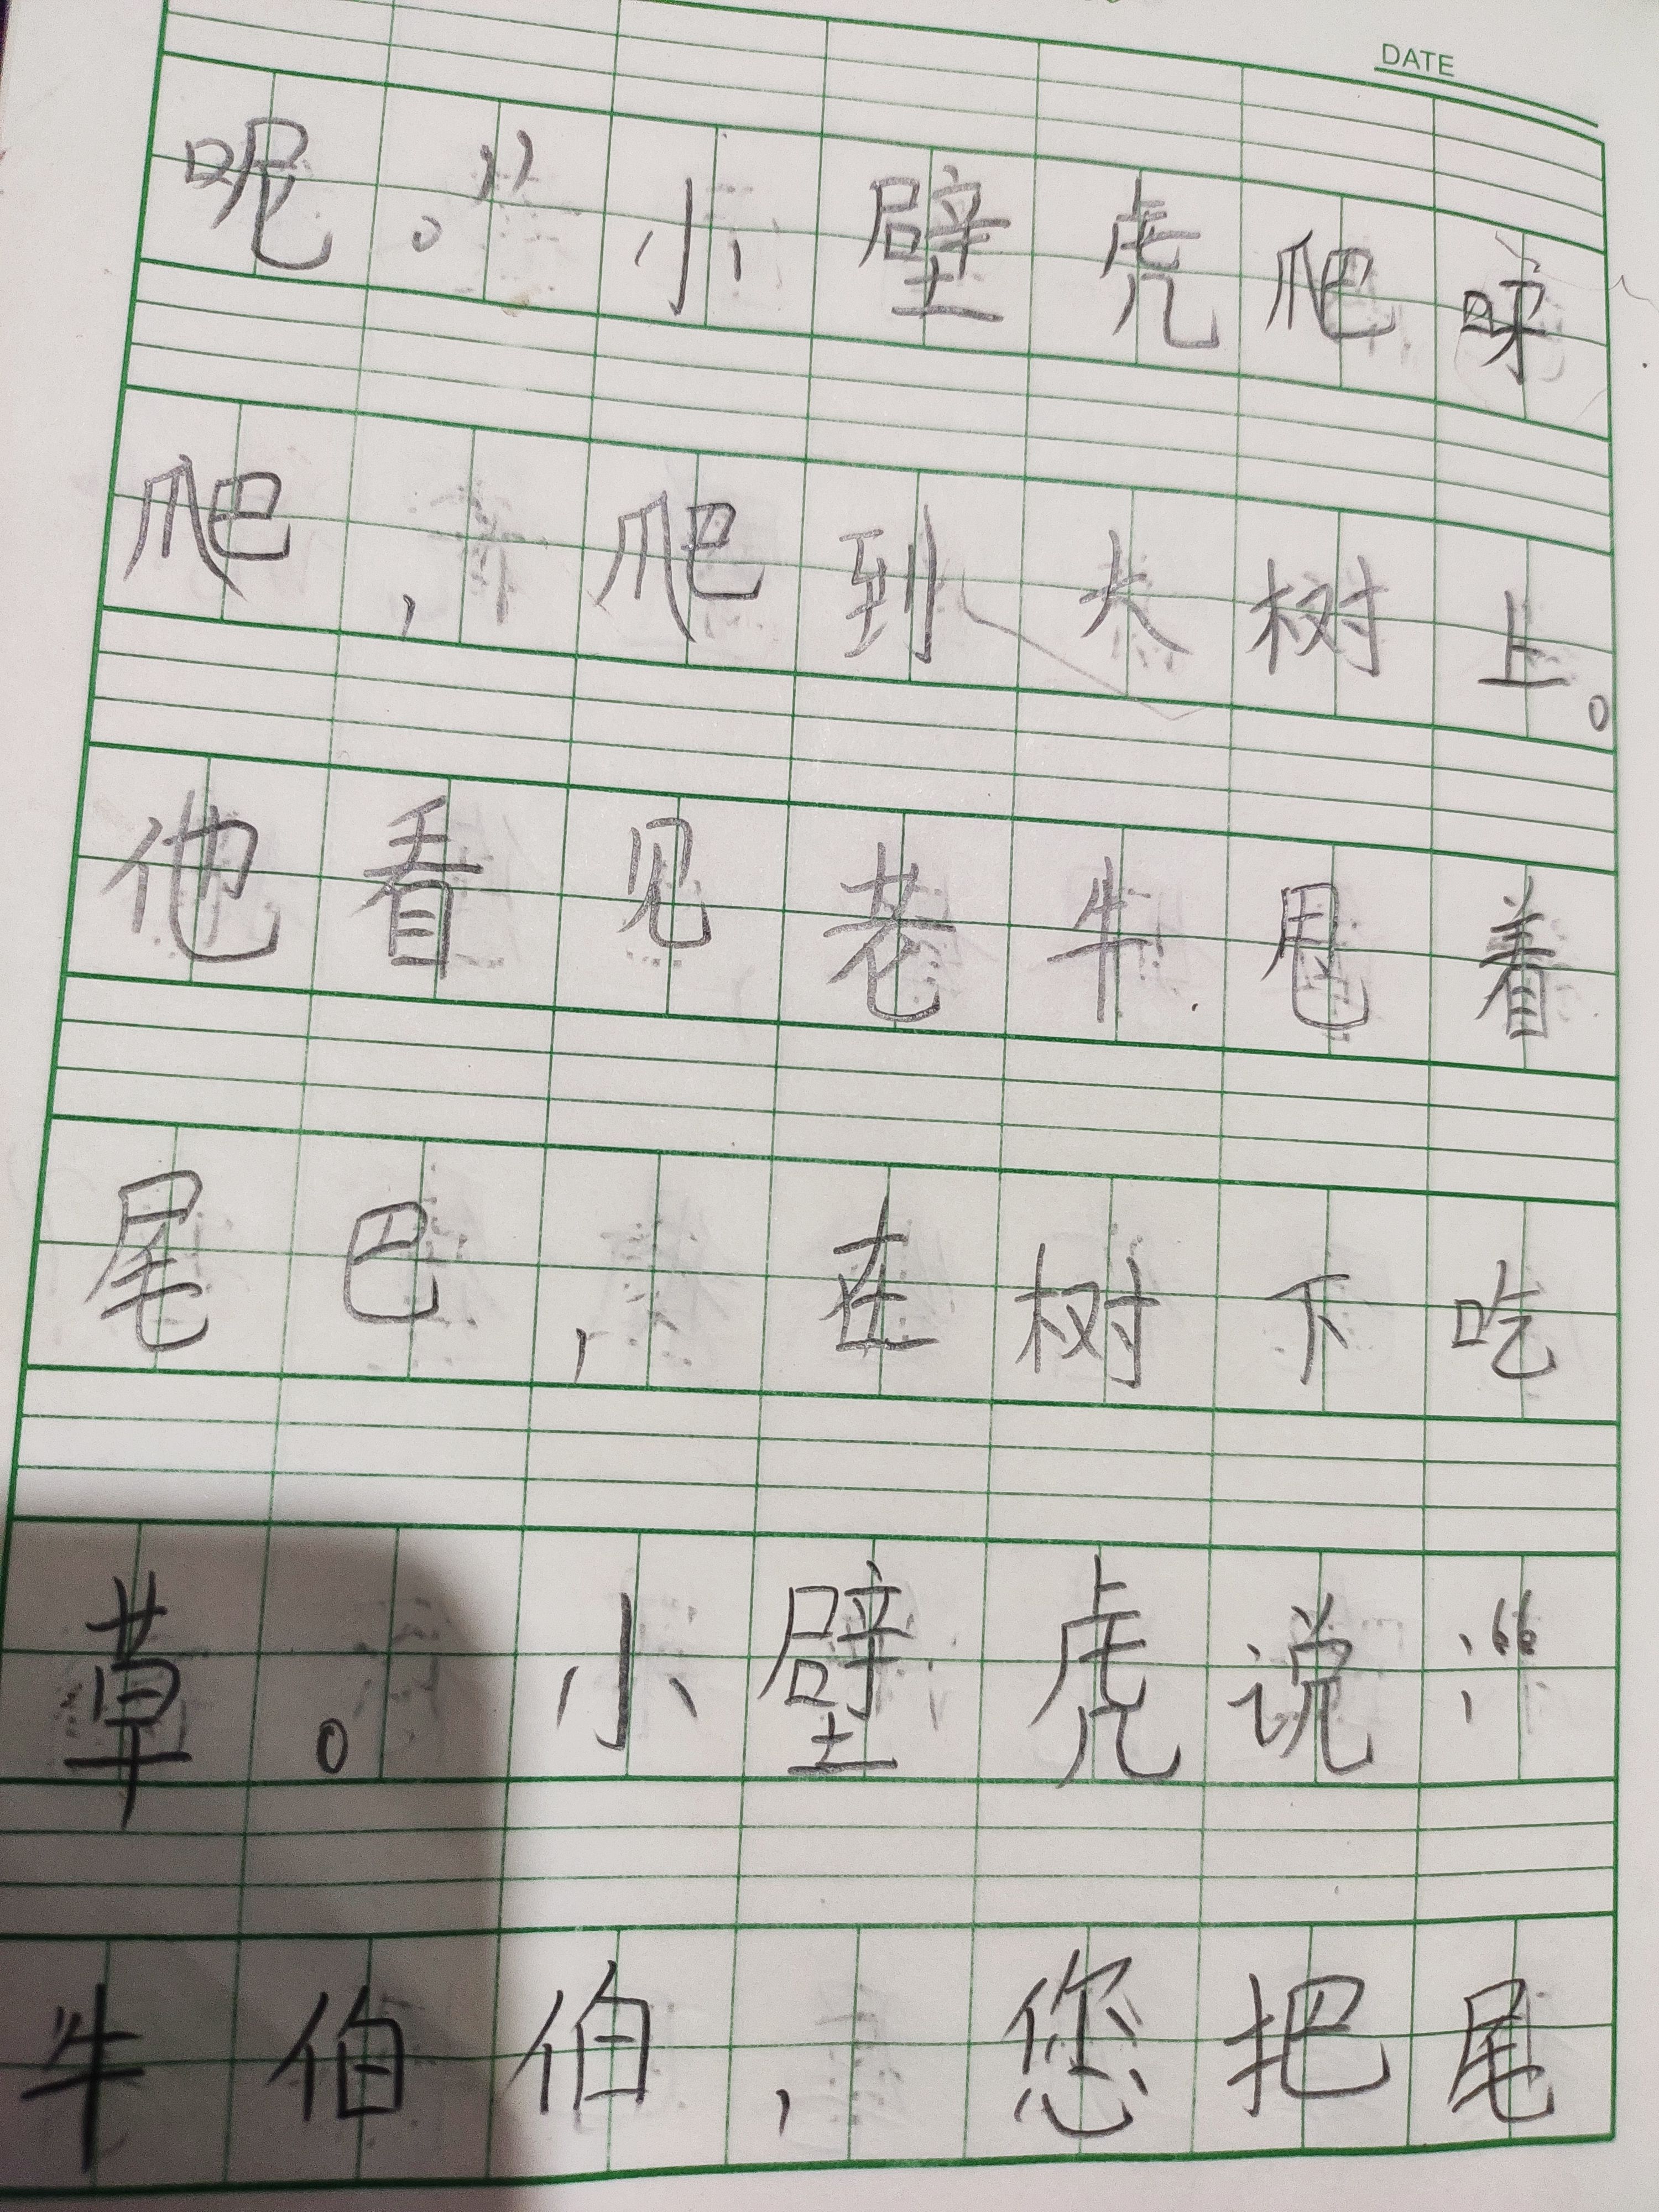 DATE
呢。”小壁虎爬呀
爬，爬到大树上。
他看见老牛甩着
尾巴，在树下吃
草。小壁虎说：“
牛伯伯，您把尾